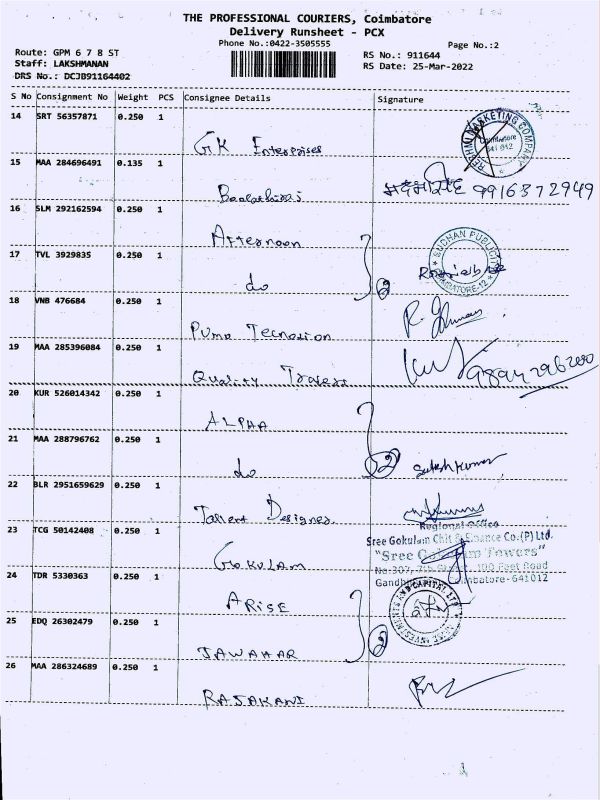 THE PROFESSIONAL COURIERS, Coimbatore
Delivery Runsheet - PCX
Phone No.:0422-3505555
Page No.:2
Route: GPM 6 7 8 ST
Staff: LAKSHMANAN
DRS No.: DCJB91164402
RS No.: 911644
RS Date: 25-Mar-2022
S No Consignment No Weight PCS Consignee Details Signature
14 SRT 56357871 0.250 1
GK Enterprises
REHMI MARKETING COMPANY
Coimbatore
641 012
15 MAA 284696491 0.135 1
9916372949
16 SLM 292162594 0.250 1
Afternoon
17 TVL 3929835 0.250 1
do
2
SUDHAN PUBLICITY
COIMBATORE-12
18 VNB 476684 0.250 1
Puma
R.
19 MAA 285396084 0.250 1
Quality
9894296200
20 KUR 526014342 0.250 1
ALPHA
21 MAA 288796762 0.250 1
do
2
22 BLR 2951659629 0.250 1
23 TCG 50142408 0.250 1
GOKULAM
Regional Office
Sree Gokulam Chit & Finance Co.(P) Ltd.
"Sree Gokulam Towers"
100 Feet Road
Coimbatore-641012
24 TDR 5330363 0.250 1
ARISE
INVESTMENTS AND CAPITAL LTD
25 EDQ 26302479 0.250 1
JAWAHAR
2
26 MAA 286324689 0.250 1
RAJAKANI